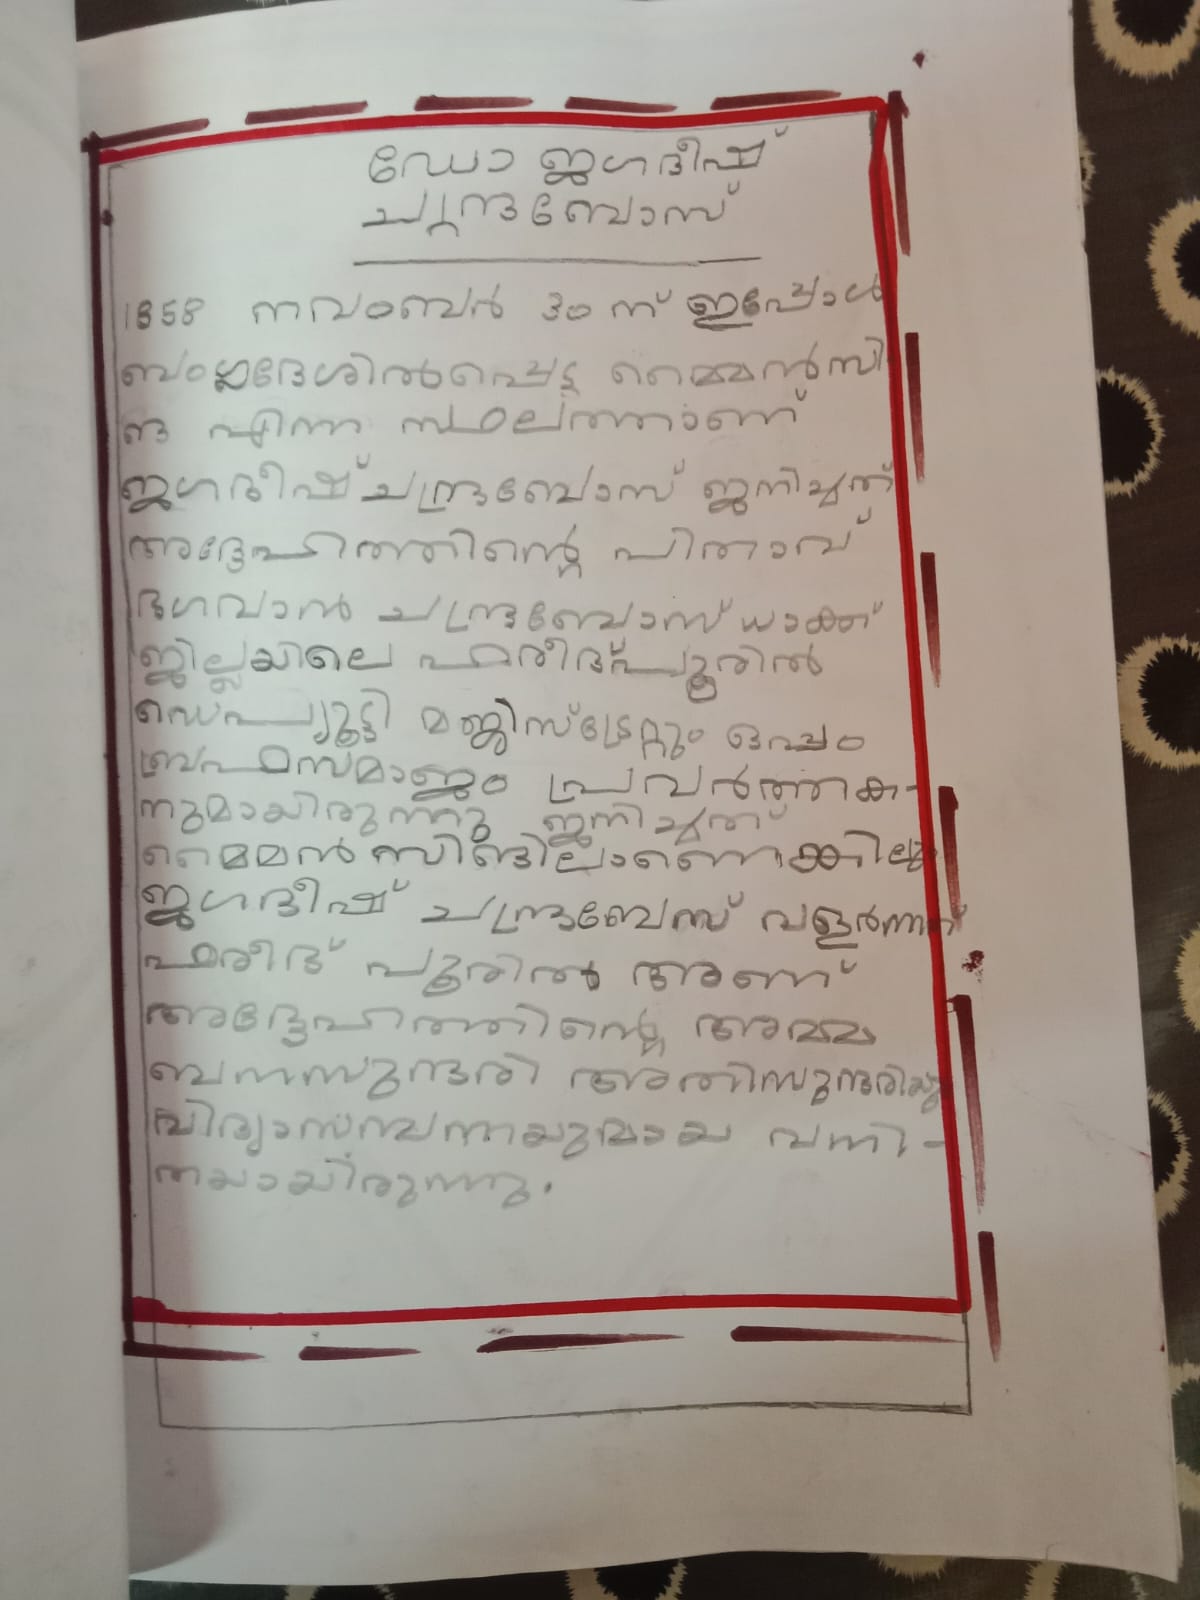 ഡോ ജഗദീഷ്
ചന്ദ്രബോസ്
1858 നവംബർ 30 ന് ഇപ്പോൾ
ബംഗ്ലദേശിൽപ്പെട്ട മൈമൻസി
ങ് എന്ന സ്ഥലത്താണ്
ജഗദീഷ് ചന്ദ്രബോസ് ജനിച്ചത്
അദ്ദേഹത്തിന്റെ പിതാവ്
ഭഗവാൻ ചന്ദ്രബോസ് ധാക്ക
ജില്ലയിലെ ഫരീദ്പൂരിൽ
ഡെപ്യൂട്ടി മജിസ്ട്രേറ്റും ഒപ്പം
ബ്രഹ്മസമാജം പ്രവർത്തക-
നുമായിരുന്നു ജനിച്ചത്
മൈമൻ സിങിലാണെങ്കിലും
ജഗദീഷ് ചന്ദ്രബേസ് വളർന്നത്
ഫരീദ് പൂരിൽ ആണ്
അദ്ദേഹത്തിന്റെ അമ്മ
ബനസുന്ദരി അതിസുന്ദരിയു
വിദ്യാസമ്പന്നയുമായ വനി-
തയായിരുന്നു.